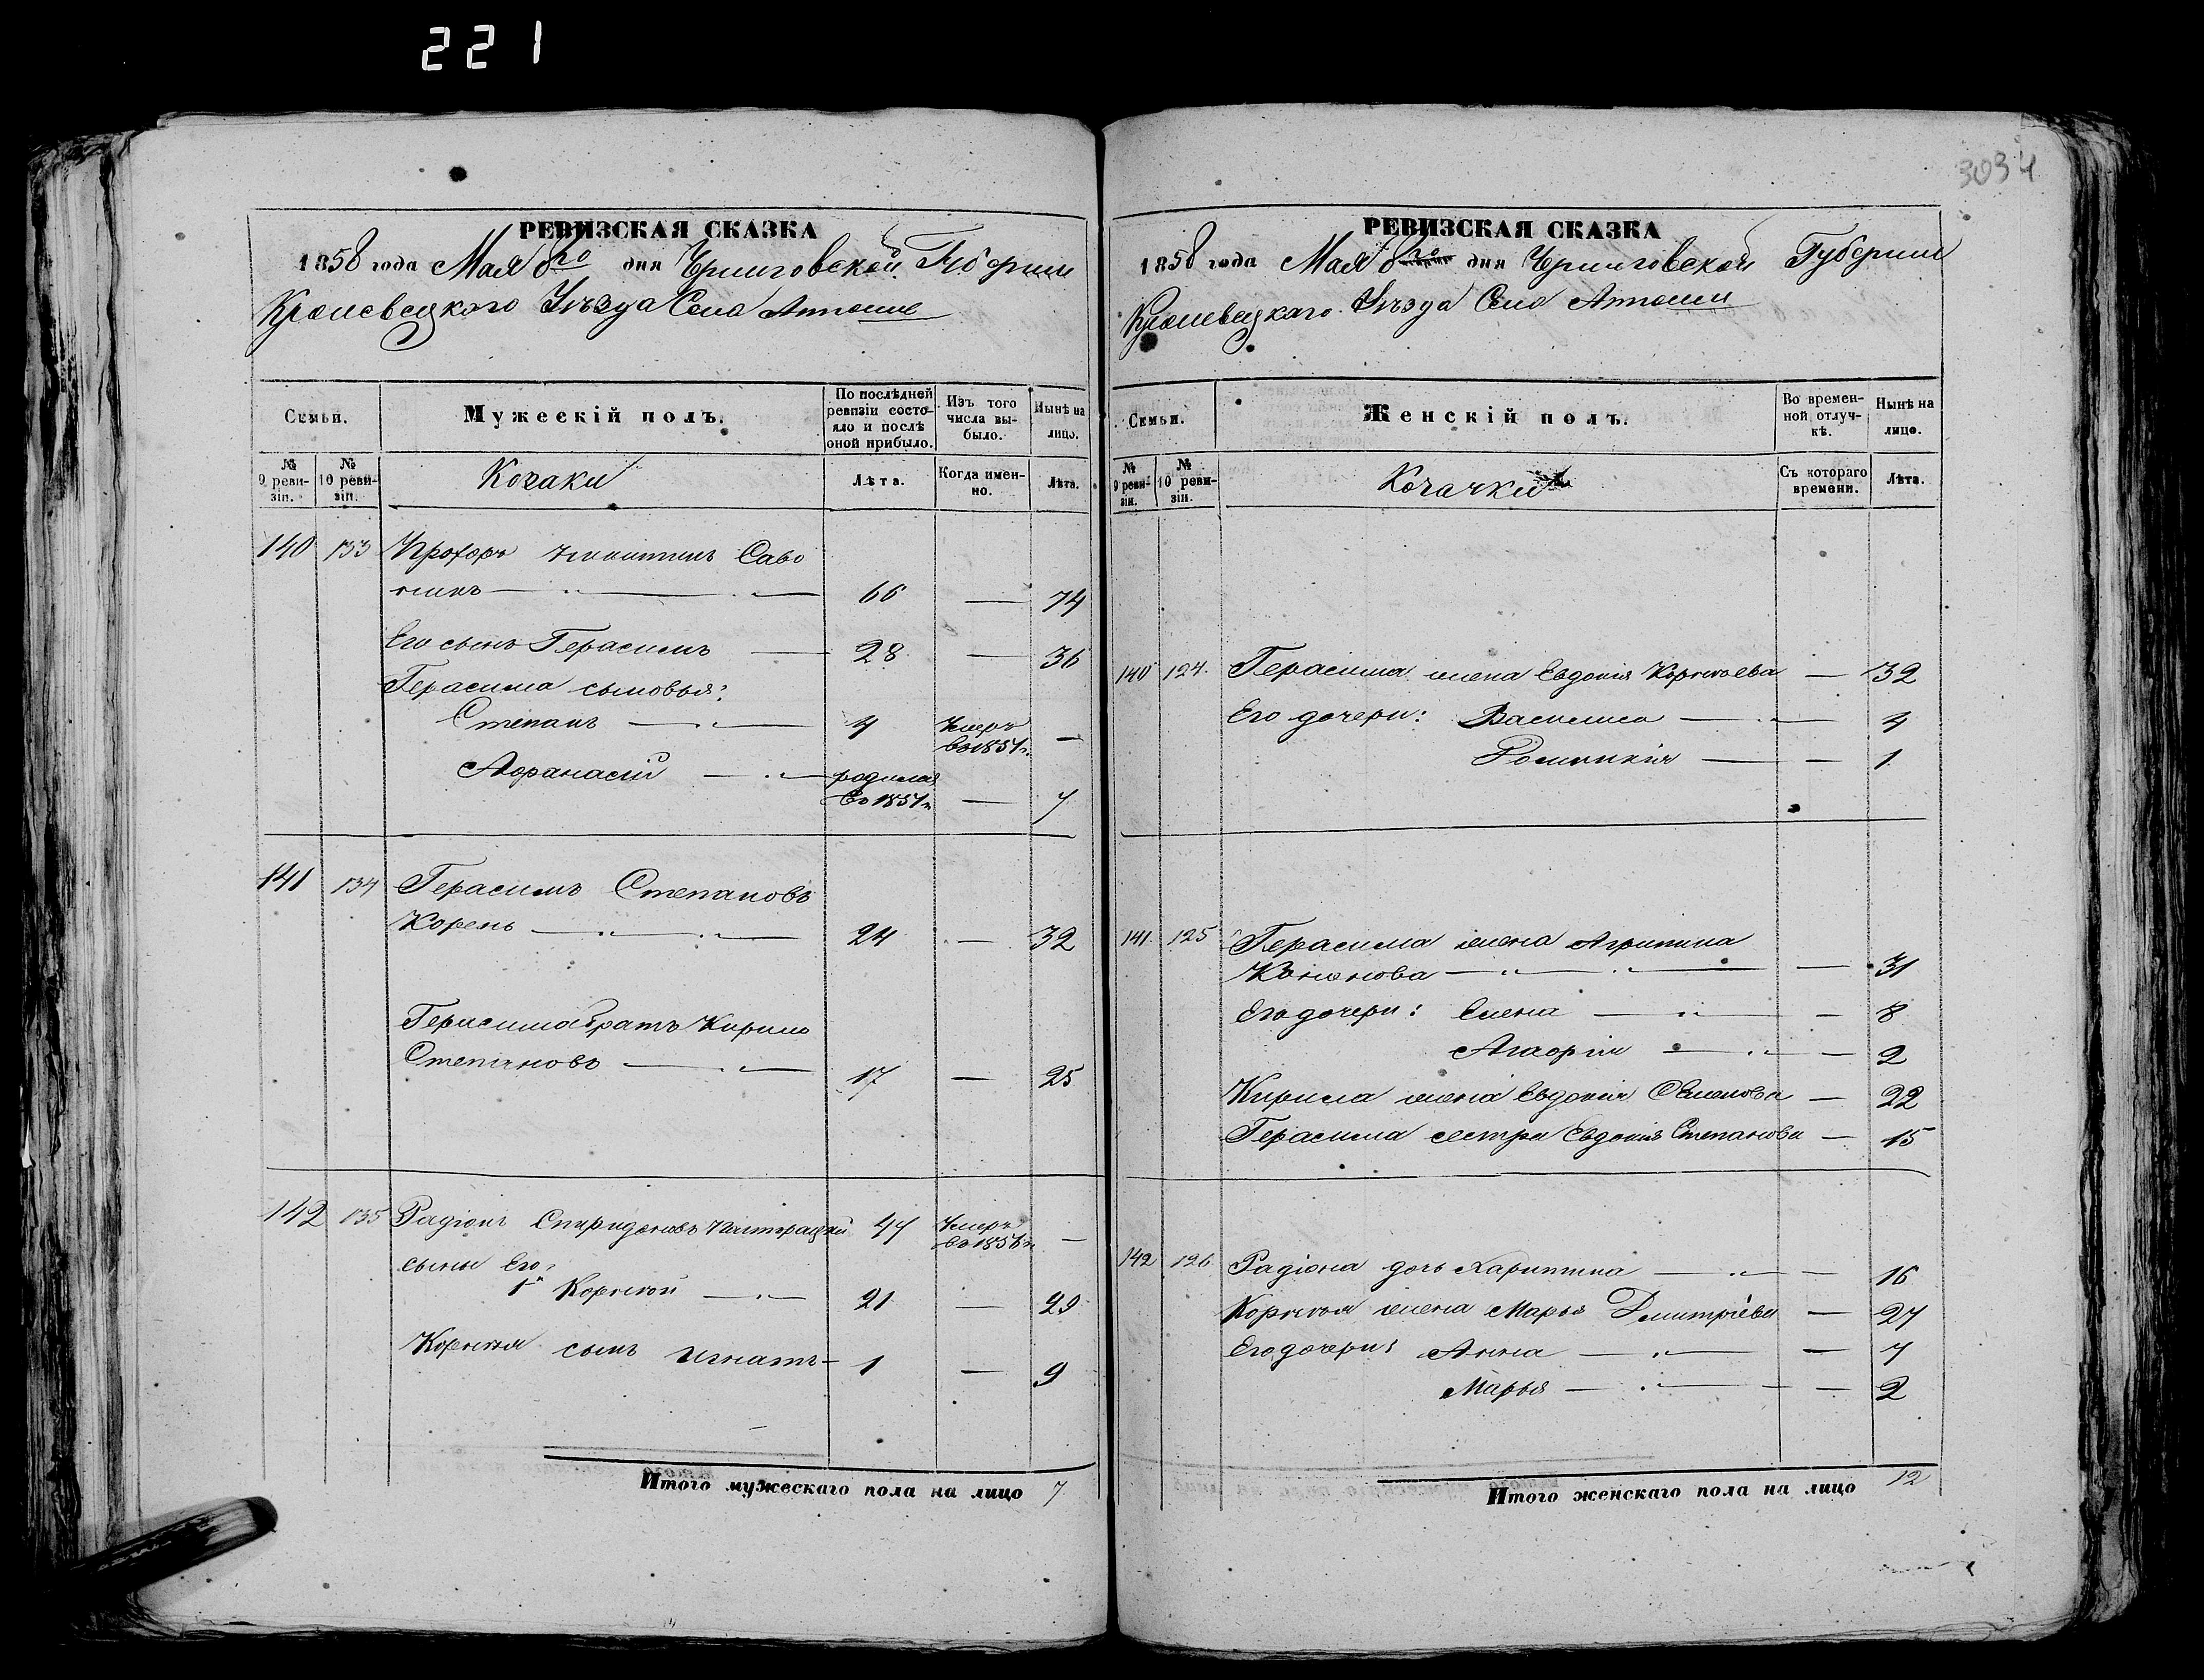 221
3034
РЕВИЗСКАЯ СКАЗКА
1858 года Мая 6го дня Черниговской Губернии
Кролевецкого Уѣзда Села
Семьи.
Мужескій полъ.
По послѣдней ревизіи состояло и послѣ оной прибыло.
Изъ того числа выбыло.
Нынѣ на лицо.
№ 9 ревизіи.
№ 10 ревизіи.
Козаки
Лѣта.
Когда именно.
Лѣта.
140 133 Прохоръ Саво
66 — 74
Его сынъ Герасимъ — 28 — 36
Герасима сыновья:
Степанъ — 4 Умеръ въ 1851 г. —
Афанасій — родился въ 1851 г. — 7
141 134 Герасимъ Степановъ
Корень — 24 — 32
Герасима братъ Кирило
Степановъ — 17 — 25
142 135 Радіонъ Спиридоновъ 47 Умеръ —
сыны Его,
1й Корнѣй — 21 — 29
Корнѣя сынъ Игнатъ — 1 — 9
Итого мужескаго пола на лицо 7
РЕВИЗСКАЯ СКАЗКА
1858 года Мая 6го дня Черниговской Губернии
Кролевецкаго Уѣзда Села
Семьи.
Женскій полъ.
Во временной отлучкѣ.
Нынѣ на лицо.
№ 9 ревизіи.
№ 10 ревизіи.
Козачки
Съ котораго времени.
Лѣта.
140 124 Герасима жена Евдокія Корнѣева — 32
Его дочери: Василиса — 4
Домникія — 1
141 125 Герасима жена Агрипина
Кононова — 31
Его дочери: Елена — 8
Агафія — 2
Кирила жена Евдокія Семенова — 22
Герасима сестра Евдокія Степанова — 15
142 126 Радіона дочь Харитина — 16
Корнѣя жена Марья Дмитріева — 27
Его дочери: Анна — 7
Марья — 2
Итого женскаго пола на лицо 12